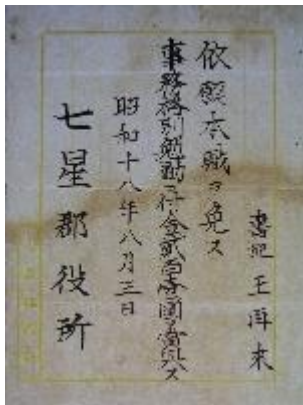 書記 王再来
依願本職ヲ免ス
事務格別勉励ニ付金貳百圓ヲ賞与ス
昭和十八年八月三日
七星郡役所